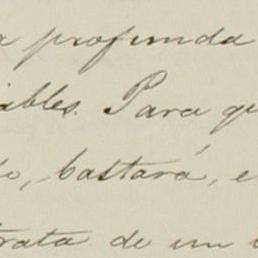 a profunda
iables. Para qu
o, bastará, e
trata de un